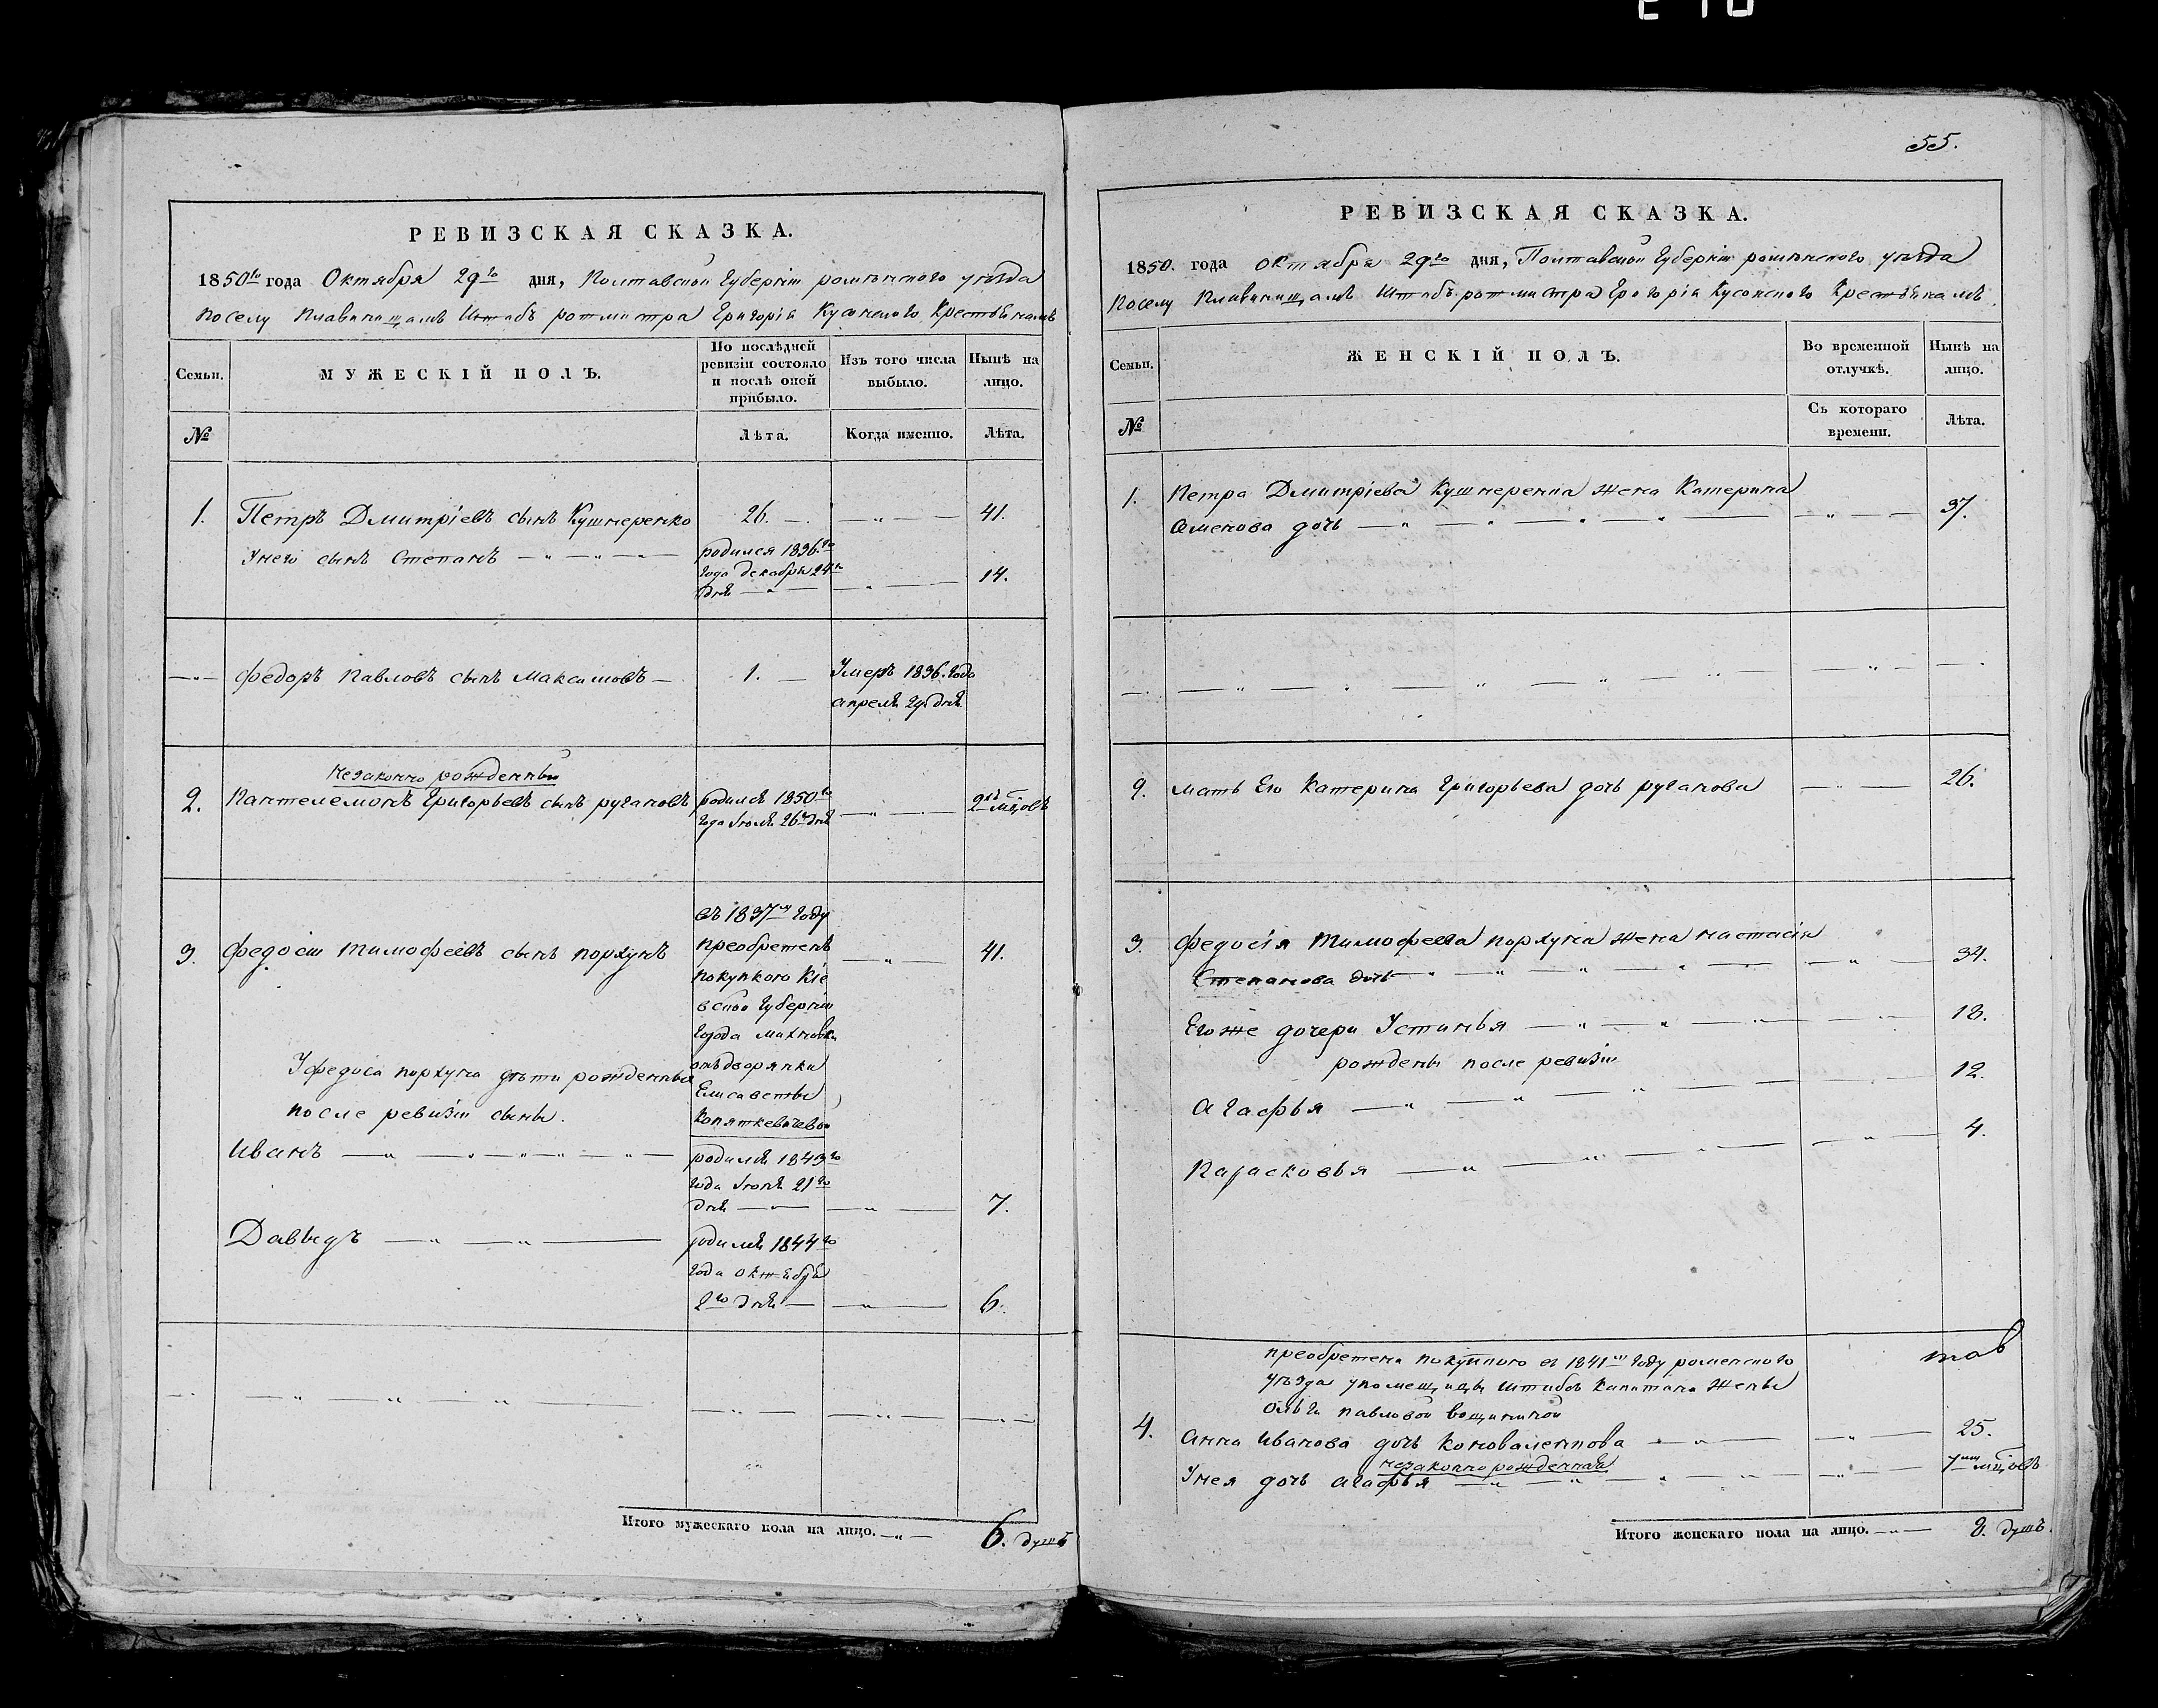 РЕВИЗСКАЯ СКАЗКА.
1850го года Октября 29го дня, Полтавской Губерніи роменского уѣзда
по селу Плавинищамъ Штабъ ротмистра Григорія Кусонского Крестьянамъ
Семьи.
МУЖЕСКІЙ ПОЛЪ.
По послѣдней
ревизіи состояло
и послѣ оной
прибыло.
Изъ того числа
выбыло.
Нынѣ на
лицо.
№
Лѣта.
Когда именно.
Лѣта.
1. Петръ Дмитріевъ сынъ Кушнеренко 26. 41.
У него сынъ Степанъ родился 1836го
года декабря 24го 14.
дня
Федоръ Павловъ сынъ Максимовъ 1. Умеръ 1836. года
апреля дня
незаконно рожденный
2. Пантелемонъ Григорьевъ сынъ ругановъ родился 1850го 2хъ мцовъ
года Июля 26го дня
въ 1837м году
3. Федосій Тимофеевъ сынъ порхунъ преобретенъ 41.
покупкою Кіе
вской Губерніи
города Махновки
У федоса порхуна дѣти рожденныя отъ дворянки
Елисаветы
после ревизіи сыны. Копяткевичевой
Иванъ родился 1843го
года Июня 21го
дня 7.
Давыдъ родился 1844го
года октября
2го дня 6.
Итого мужескаго пола на лицо. 6. душъ
55.
РЕВИЗСКАЯ СКАЗКА.
1850. года октября 29го дня, Полтавской Губерніи роменского уѣзда
по селу Плавинищамъ Штабъ ротмистра Григорія Кусонского Крестьянамъ.
Семьи.
ЖЕНСКІЙ ПОЛЪ.
Во временной
отлучкѣ.
Нынѣ на
лицо.
№
Съ котораго
времени.
Лѣта.
1. Петра Дмитріева Кушнеренка жена Катерина
Семенова дочь 37.
2. мать Его Катерина Григорьева дочь руганова 26.
3. Федосія Тимофеева порхуна жена настасія
Степанова дочь 34.
Его же дочери Устинья 18.
рождены после ревизіи
Агафья 12.
Парасковья 4.
преобретена покупкою въ 1841м году роменского
уѣзда у помещицы штабсъ капитана жены
Ольги павловой
4. Анна Иванова дочь Коноваленкова 25.
незаконно рожденная
У нея дочь Агафья 7ми мцовъ
Итого женскаго пола на лицо. 8. душъ.